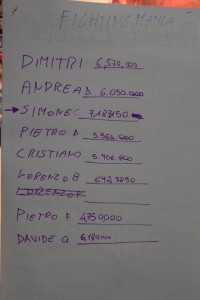 FIGHTING MANIA
DIMITRI 6,570,000
ANDREA D 6.050.000
→ SIMONE C 7.187.150
PIETRO D 5.566.000
CRISTIANO
LORENZO B
LORENZO F
PIETRO F 4,750,000
DAVIDE G.